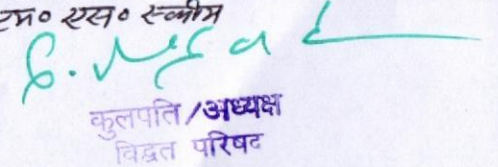 एम० एस० स्कीम
कुलपति/अध्यक्ष
विद्वत परिषद